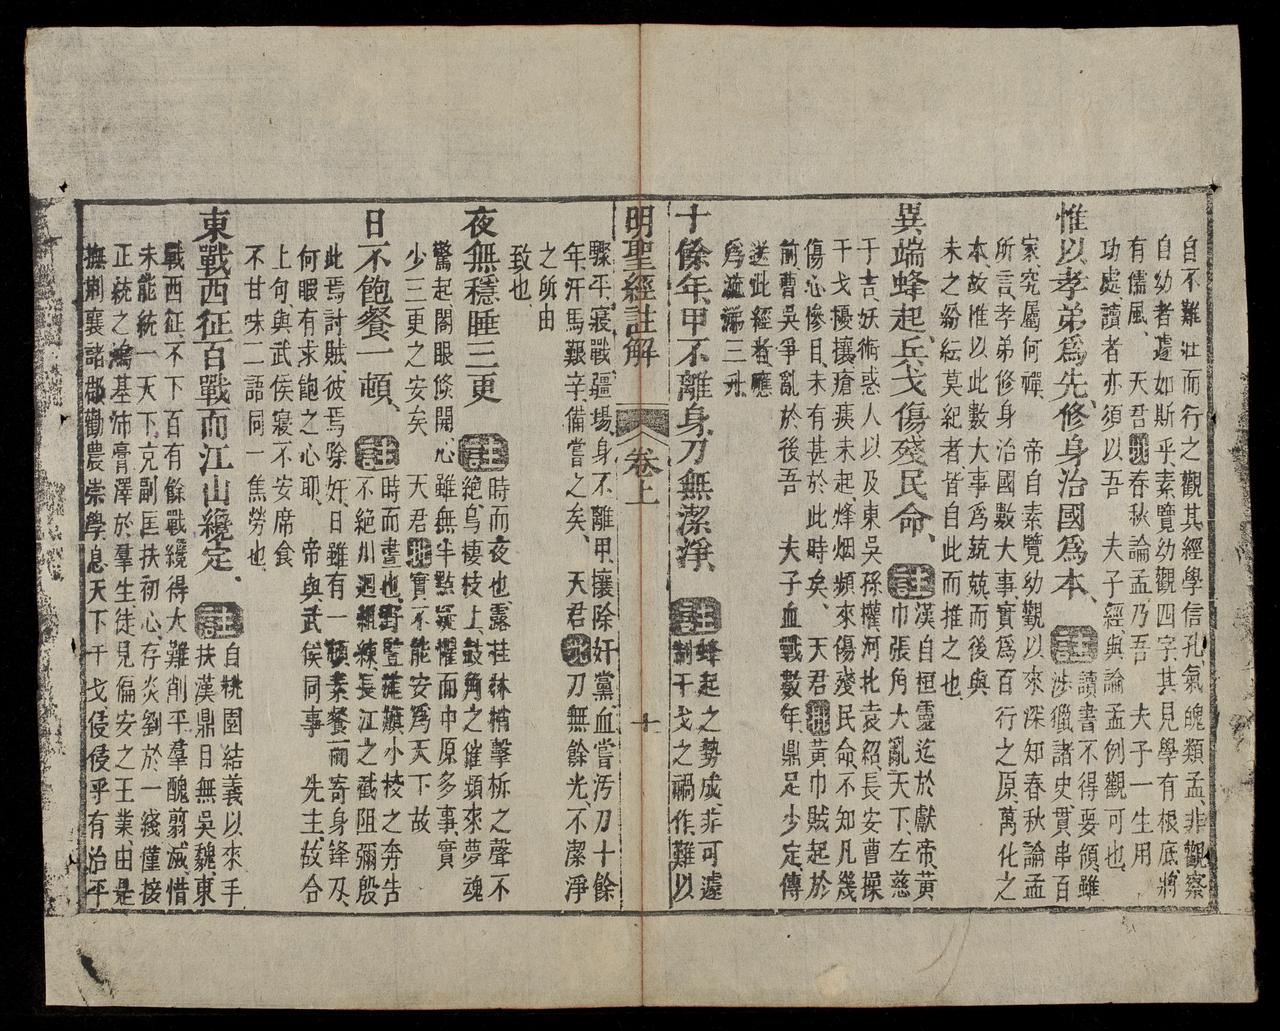 自不難壯而行之觀其經學信孔氣魄類孟非觀察
自幼者遽如斯乎素覽幼觀四字其見學有根底將
有儒風、天君 春秋論孟乃吾 夫子一生用
功處讀者亦須以吾 夫子經與論孟例觀可也
惟以孝弟爲先修身治國爲本、註讀書不得要領雖
涉獵諸史貫串百
家究屬何裨 帝自素覽幼觀以來深知春秋論孟
所言孝弟修身治國數大事實爲百行之原萬化之
本故惟以此數大事爲兢兢而後與
未之紛紜莫紀者皆自此而推之也
異端蜂起兵戈傷殘民命、註漢自桓靈迄於獻帝黃
巾張角大亂天下左慈
于吉妖術惑人以及東吳孫權河北袁紹長安曹操
干戈擾攘瘡痍未起烽烟頻來傷殘民命不知凡幾
傷心慘目未有甚於此時矣、天君 黃巾賊起於
前曹吳爭亂於後吾 夫子血戰數年鼎足少定傳
送此經者應
爲流涕三升
十餘年甲不離身刀無潔淨、註蜂起之勢成非可遽
制干戈之禍作難以
明聖經註解 卷上 十
驟平寢戰疆場身不離甲攘除奸黨血嘗汚刀十餘
年汗馬艱辛備嘗之矣、天君 刀無餘光不潔淨
之所由
致也
夜無穩睡三更 註時而夜也露桂林稍擊柝之聲不
絕烏棲枝上鼓角之催頻來夢魂
驚起閤眼倏開心雖無半點疑懼而中原多事實
少三更之安矣 天君 實不能安爲天下故
日不飽餐一頓、註時而晝也野竪旌旗小校之奔告
不絕川迴組練長江之截阻彌殷
此焉討賊彼焉除奸日雖有一頓素餐而寄身鋒刃
何暇有求飽之心耶、帝與武侯同事 先主故合
上句與武侯寢不安席食
不甘味二語同一焦勞也
東戰西征百戰而江山纔定、註自桃園結義以來手
扶漢鼎目無吳魏東
戰西征不下百有餘戰纔得大難削平羣醜翦滅惜
未能統一天下克副匡扶初心存炎劉於一綫僅接
正統之鴻基沛膏澤於羣生徒見偏安之王業由是
撫荆襄諸郡勸農崇學息天下干戈侵侵乎有治平